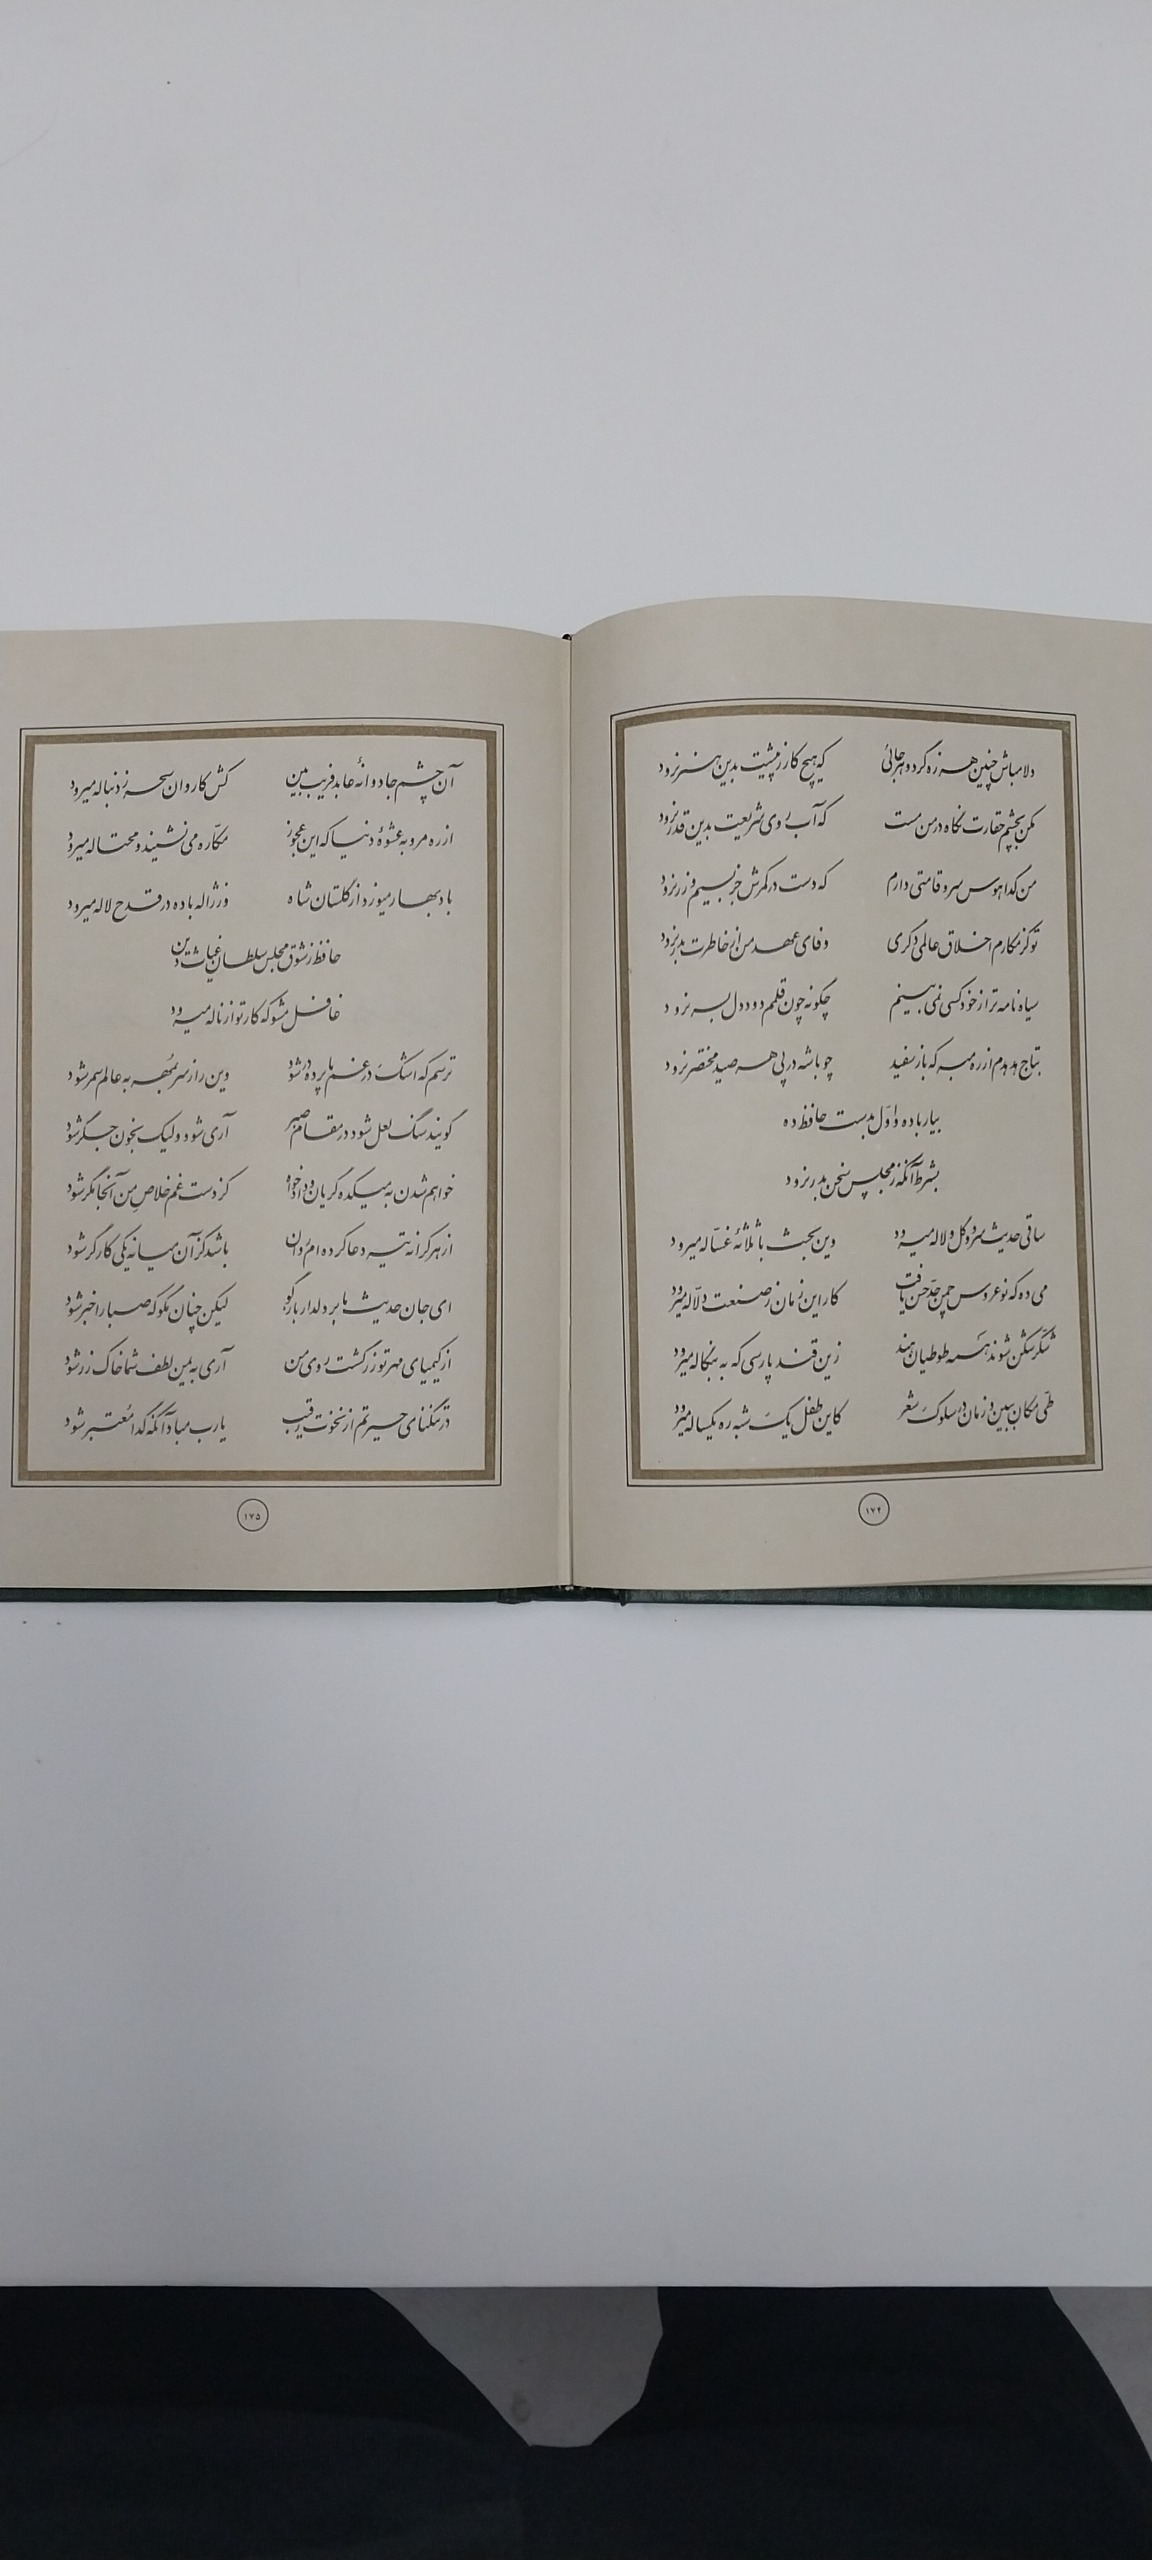 دلا مباش چنین هرزه گرد و هر جائی که هیچ کار ز پیشت بدین هنر نرود
مکن بچشم حقارت نگاه در من مست که آب روی شریعت بدین قدر نرود
من گدا هوس سرو قامتی دارم که دست در کمرش جز بسیم و زر نرود
تو کز مکارم اخلاق عالمی دگری وفای عهد من از خاطرت بدر نرود
سیاه نامه تر از خود کسی نمی بینم چگونه چون قلمم دود دل بسر نرود
بتاج هدهدم از ره مبر که باز سفید چو باشه در پی هر صید مختصر نرود
بیار باده و اول بدست حافظ ده
بشرط آنکه ز مجلس سخن بدر نرود
ساقی حدیث سرو و گل و لاله میرود وین بحث با ثلاثهٔ غسّاله میرود
می ده که نوعروس چمن حدّ حسن یافت کار این زمان ز صنعت دلّاله میرود
شکّر شکن شوند همه طوطیان هند زین قند پارسی که به بنگاله میرود
طیّ مکان ببین و زمان در سلوک شعر کاین طفل یک شبه ره یکساله میرود
۱۷۴
آن چشم جادوانهٔ عابد فریب بین کش کاروان سحر ز دنباله میرود
از ره مرو به عشوهٔ دنیا که این عجوز مکّاره می نشیند و محتاله میرود
باد بهار میوزد از گلستان شاه وز ژاله باده در قدح لاله میرود
حافظ ز شوق مجلس سلطان غیاث دین
غافل مشو که کار تو از ناله میرود
ترسم که اشک در غم ما پرده در شود وین راز سر بمُهر به عالم سمر شود
گویند سنگ لعل شود در مقام صبر آری شود ولیک بخون جگر شود
خواهم شدن به میکده گریان و دادخواه کز دست غم خلاص من آنجا مگر شود
از هر کرانه تیر دعا کرده ام روان باشد کز آن میانه یکی کارگر شود
ای جان حدیث ما بر دلدار بازگو لیکن چنان مگو که صبا را خبر شود
از کیمیای مهر تو زر گشت روی من آری به یمن لطف شما خاک زر شود
در تنگنای حیرتم از نخوت رقیب یارب مباد آنکه گدا معتبر شود
۱۷۵